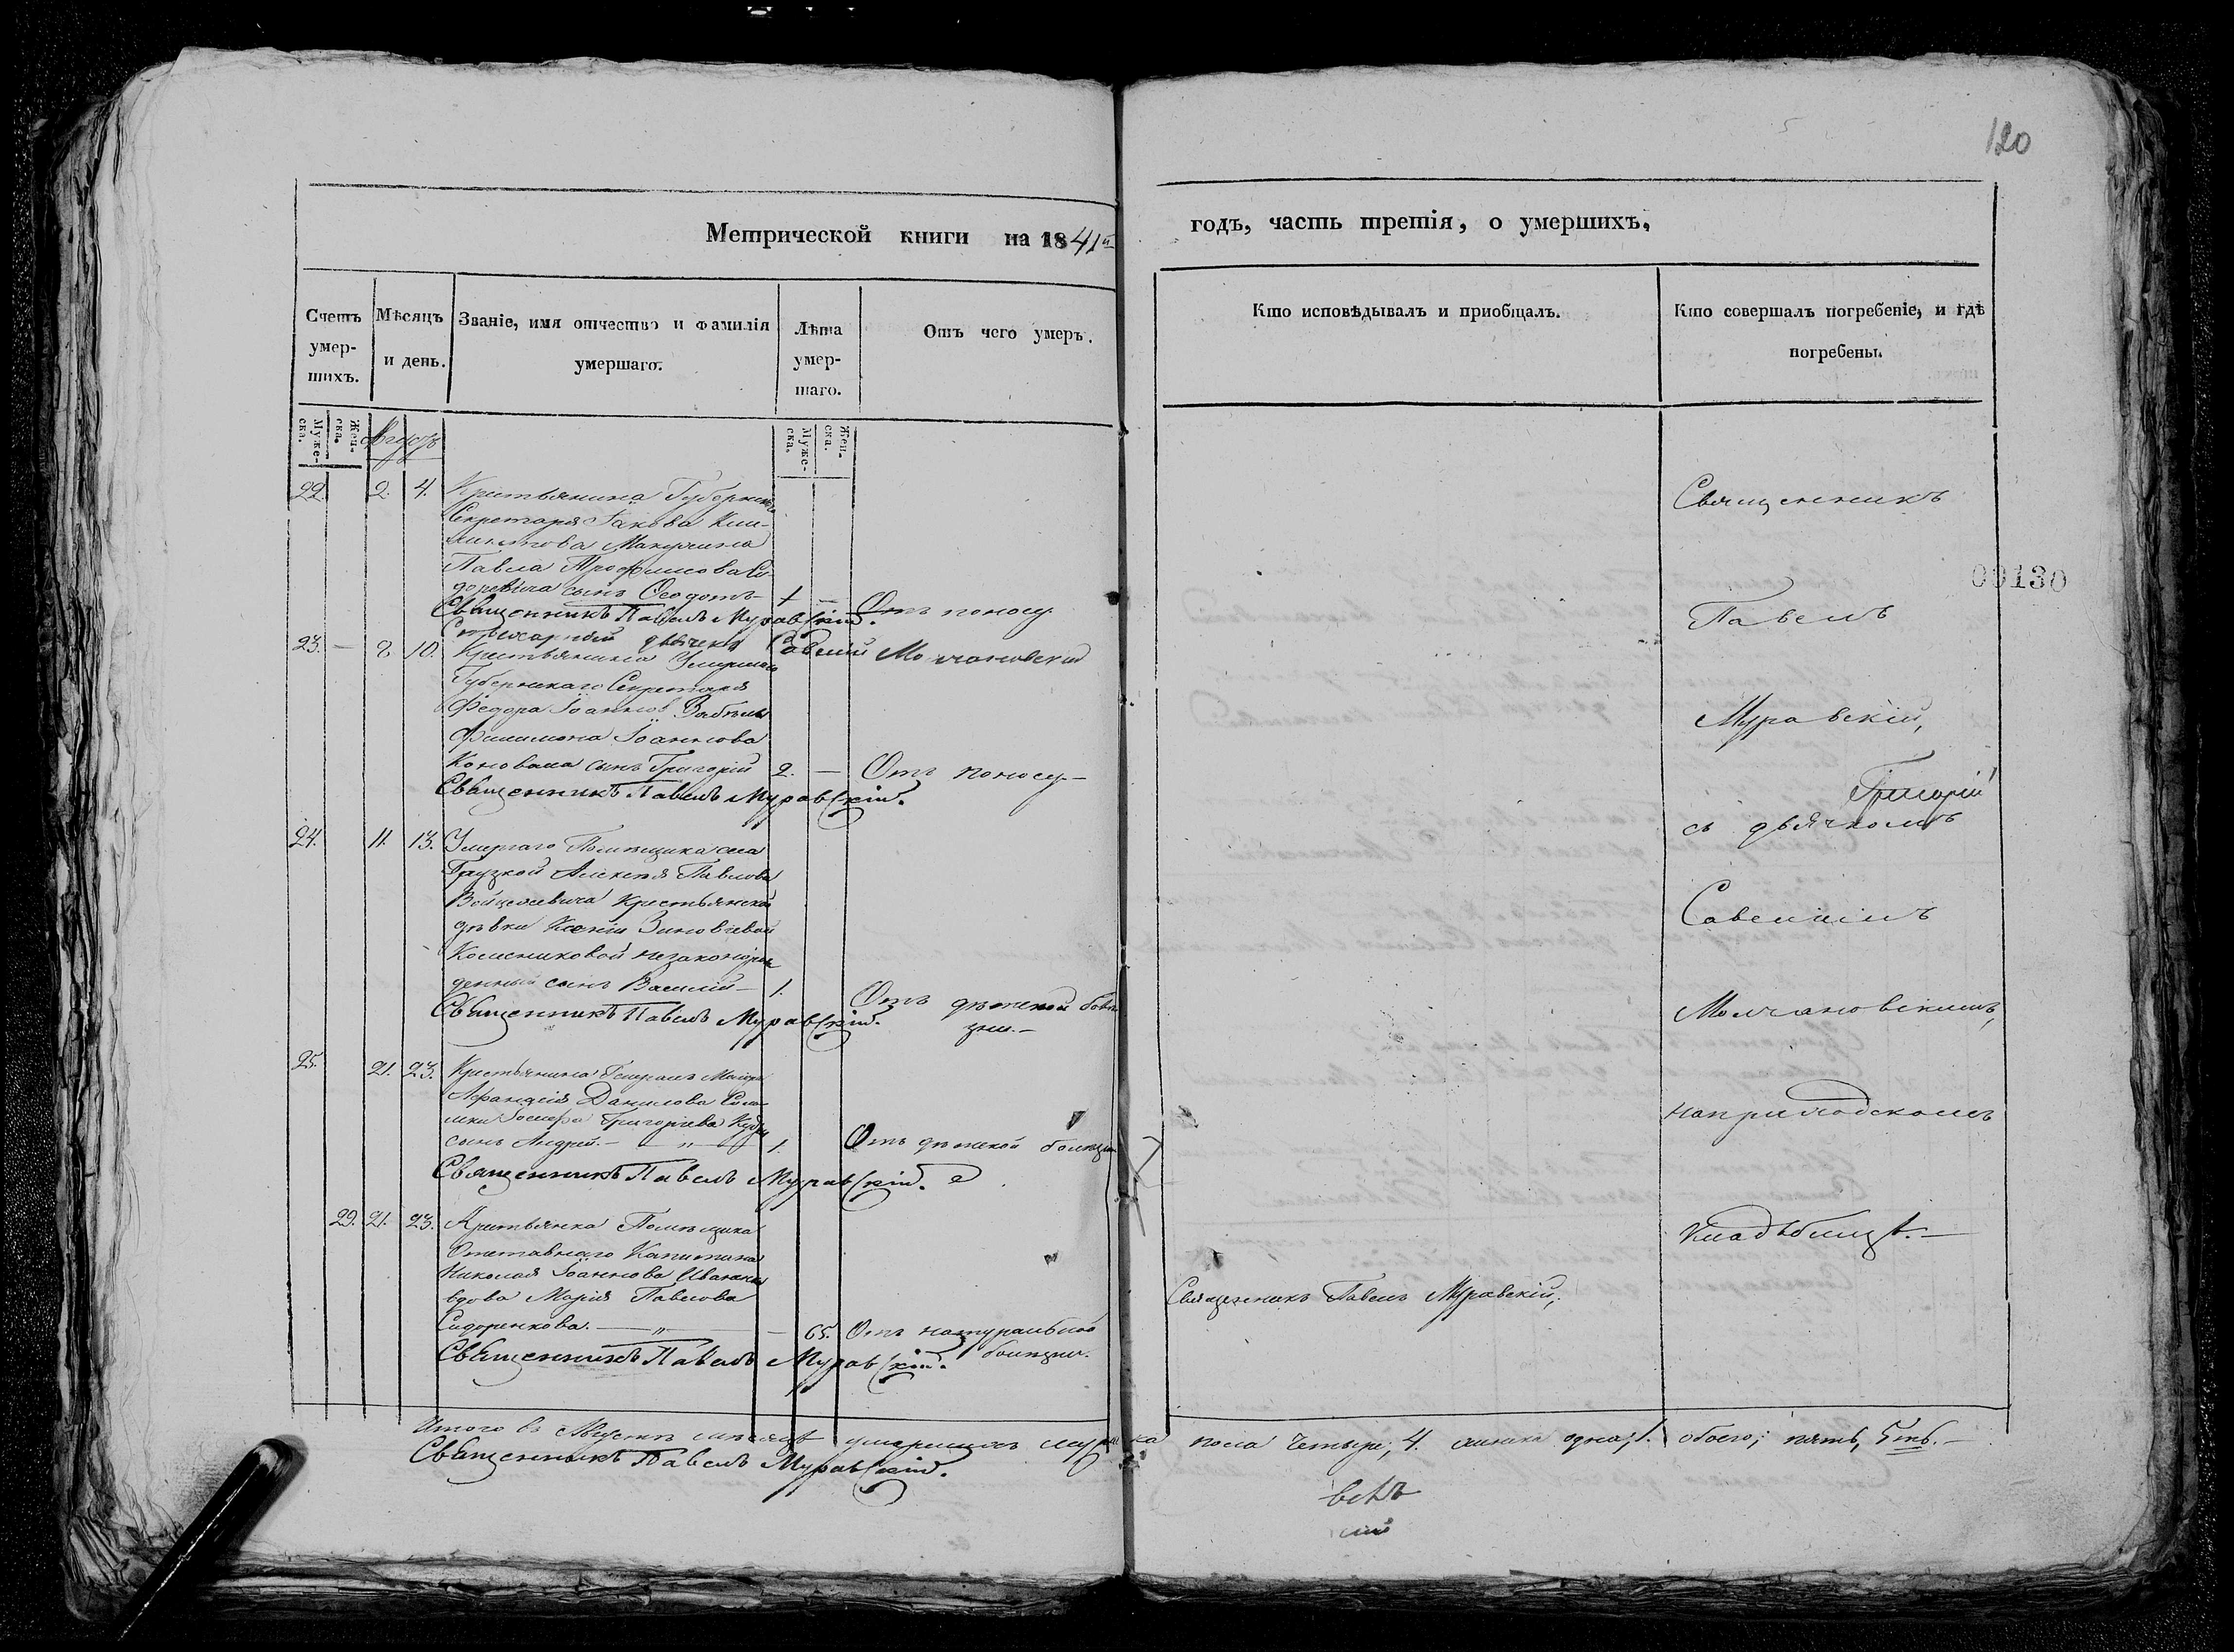 120
Метрической книги на 1841й
годъ, часть третія, о умершихъ.
Счетъ умер-шихъ.
Мѣсяцъ и день.
Званіе, имя отчество и фамилія умершаго.
Лѣта умер-шаго.
Отъ чего умеръ.
Кто исповѣдывалъ и приобщалъ.
Кто совершалъ погребеніе, и гдѣ погребены.
Муже-ска.
Жен-ска.
Августъ
Муже-ска.
Жен-ска.
22. 2. 4. Крестьянина Губернскаго
Секретаря Іакова
Павла Трофимова
сынъ Ѳеодотъ — 1 — Отъ поносу
Священникъ Павелъ Муравскій.
дьячекъ Савелій Молчановскій
23. — 8. 10. Крестьянина Умершаго
Губернскаго Секретаря
Федора Іоаннова
Филимона Іоаннова
Коновала сынъ Григорій 2. — Отъ поносу —
Священникъ Павелъ Муравскій.
24. 11. 13. Умершаго Помѣщика села
Алексѣя Павлова
Войцеховича крестьянской
дѣвки Ксеніи Зиновіевой
Колесниковой незаконорож
денный сынъ Василій — 1. Отъ дѣтской болѣ
зни. —
Священникъ Павелъ Муравскій.
25. 21. 23. Крестьянина Генералъ Маіора
Данилова
Іосифа Григорьева
сынъ Андрей. — „ — 1. Отъ дѣтской болѣзни
Священникъ Павелъ Муравскій.
29. 21. 23. Крестьянка Помѣщика
Отставнаго Капитана
Николая Іоаннова
вдова Марія Павлова
Сидоренкова. — „ — — 65. Отъ натуральной
болѣзни.
Священникъ Павелъ Муравскій.
Священникъ Павелъ Муравскій,
Священникъ
Павелъ
Муравскій,
Григорій
съ дьячкомъ
Савеліемъ
Молчановскимъ,
на приходскомъ
кладбищѣ. —
00130
Итого въ Августѣ мѣсяцѣ умершихъ мужеска пола четыре, 4. женска одна, 1. обоего; пять, 5ть. —
Священникъ Павелъ Муравскій.